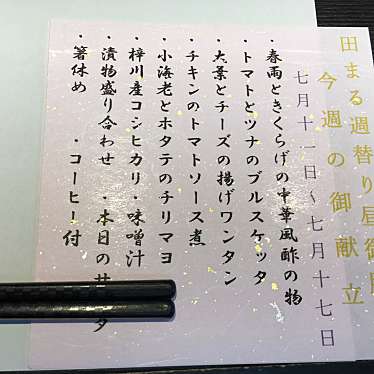 田まる週替り昼御膳
今週の御献立
七月十一日~七月十七日
・春雨ときくらげの中華風酢の物
・トマトとツナのブルスケッタ
・大葉とチーズの揚げワンタン
・チキンのトマトソース煮
・小海老とホタテのチリマヨ
・梓川産コシヒカリ・味噌汁
・漬物盛り合わせ・本日のサ
・箸休め ・コーヒー付